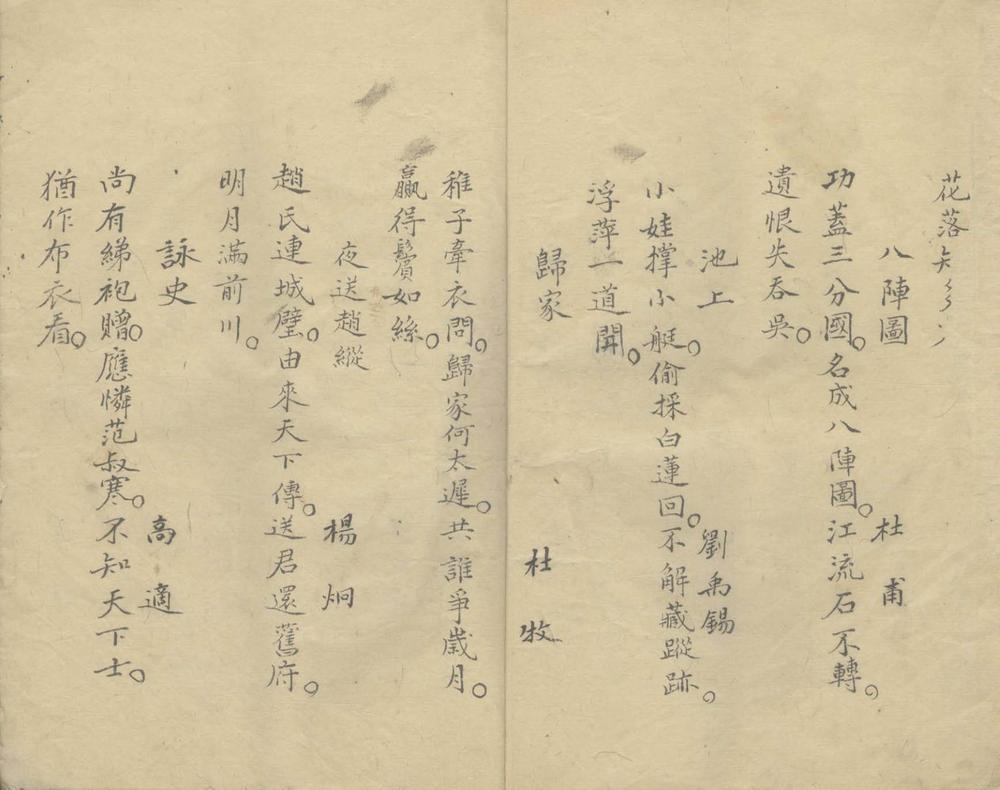 花落
八陣圖 杜甫
功蓋三分國。名成八陣圖。江流石不轉。
遺恨失吞吳。
池上 劉禹錫
小娃撑小艇。偷採白蓮回。不解藏蹤跡。
浮萍一道開。
歸家 杜牧
稚子牽衣問。歸家何太遲。共誰爭歲月。
贏得鬢如絲。
夜送趙縱 楊炯
趙氏連城璧。由來天下傳。送君還舊府。
明月滿前川。
詠史 高適
尚有綈袍贈。應憐范叔寒。不知天下士。
猶作布衣看。